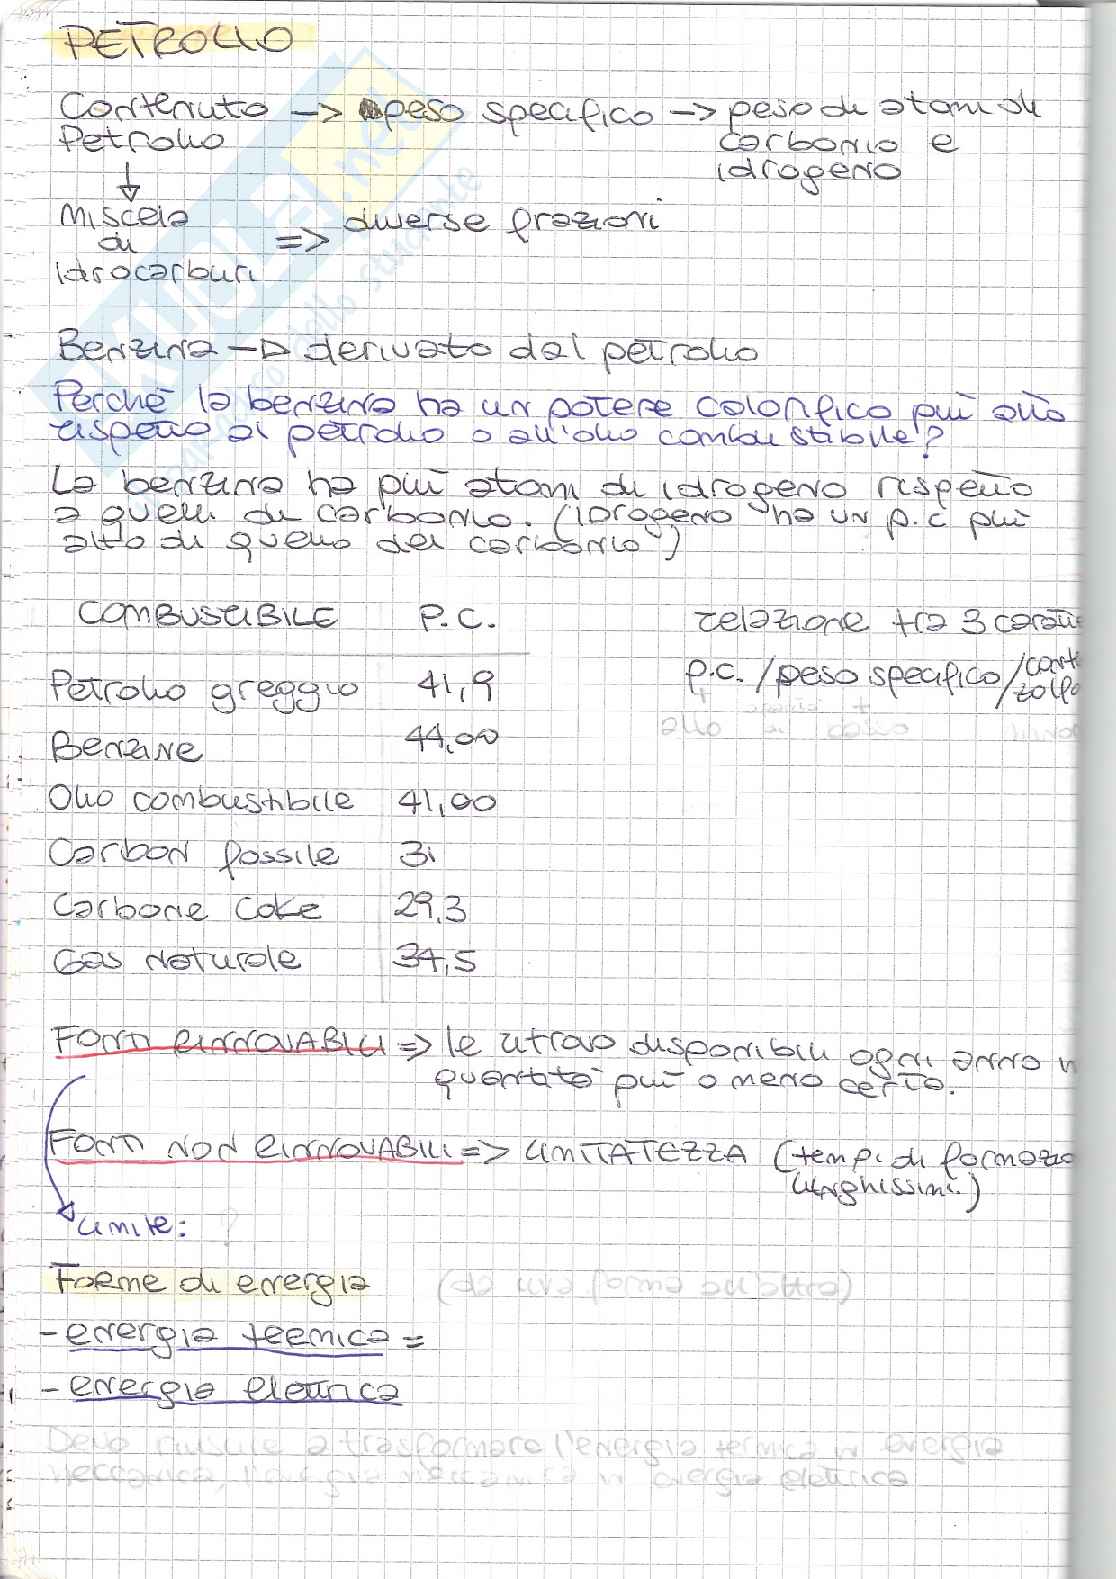 PETROLIO
Contenuto → peso specifico → peso di atomi di
Petrolio carbonio e
↓ idrogeno
Miscela => diverse frazioni
di
idrocarburi
Benzina → derivato del petrolio
Perché la benzina ha un potere calorifico più alto
rispetto al petrolio o all'olio combustibile?
La benzina ha più atomi di idrogeno rispetto
a quelli di carbonio. (idrogeno ha un p.c più
alto di quello del carbonio)
COMBUSTIBILE P.C. relazione tra 3 caratte
p.c. / peso specifico / cont
zolfo
Petrolio greggio 41,9
alto basso
Benzine 44,00
Olio combustibile 41,00
Carbon fossile 31
Carbone Coke 29,3
Gas Naturale 34,5
FONTI RINNOVABILI => le ritrovo disponibili ogni anno
quantità più o meno certa.
FONTI NON RINNOVABILI => LIMITATEZZA (tempi di formazio
lunghissimi)
Limite: ?
Forme di energia (da una forma all'altra)
- energia termica =
- energia elettrica
Devo riuscire a trasformare l'energia termica in energia
meccanica, l'energia meccanica in energia elettrica
SKUOLA.net
dallo studente